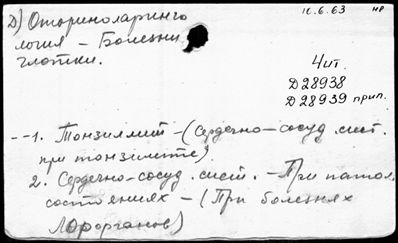 10.6.63 нр
Д) Оториноларинго
логия – Болезни
глотки.
Чит.
Д28938
Д28939 прил.
--1. Тонзиллит – (Сердечно-сосуд. сист.
при тонзиллите).
2. Сердечно-сосуд. сист. – При патол.
состояниях – (При болезнях
ЛОРорганов)